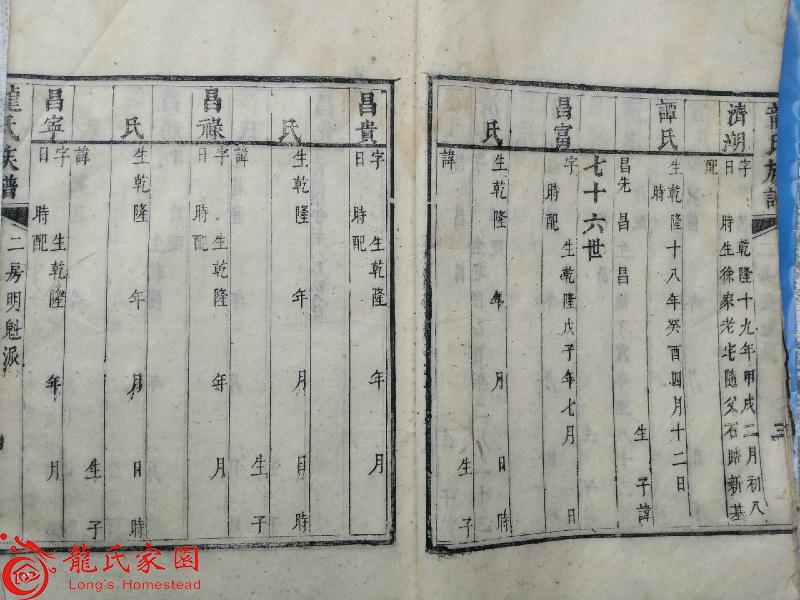 龍氏族譜
三
濟湖 字 乾隆十九年甲戌二月初八
日 時生徐家老宅隨父石蹄新基
配
譚氏 生乾隆十八年癸酉四月十二日
時 生子諱
昌先 昌 昌
七十六世
昌富 字 生乾隆戊子年七月 日
時配
氏 生乾隆 年 月 日 時
諱 生子
昌貴 字 生乾隆 年 月
日 時配
氏 生乾隆 年 月 日 時
諱 生子
昌祿 字 生乾隆 年 月
日 時配
氏 生乾隆 年 月 日 時
諱 生子
昌寧 字 生乾隆 年 月
日 時配
龍氏族譜 二房明魁派
龍氏家園
Long's Homestead